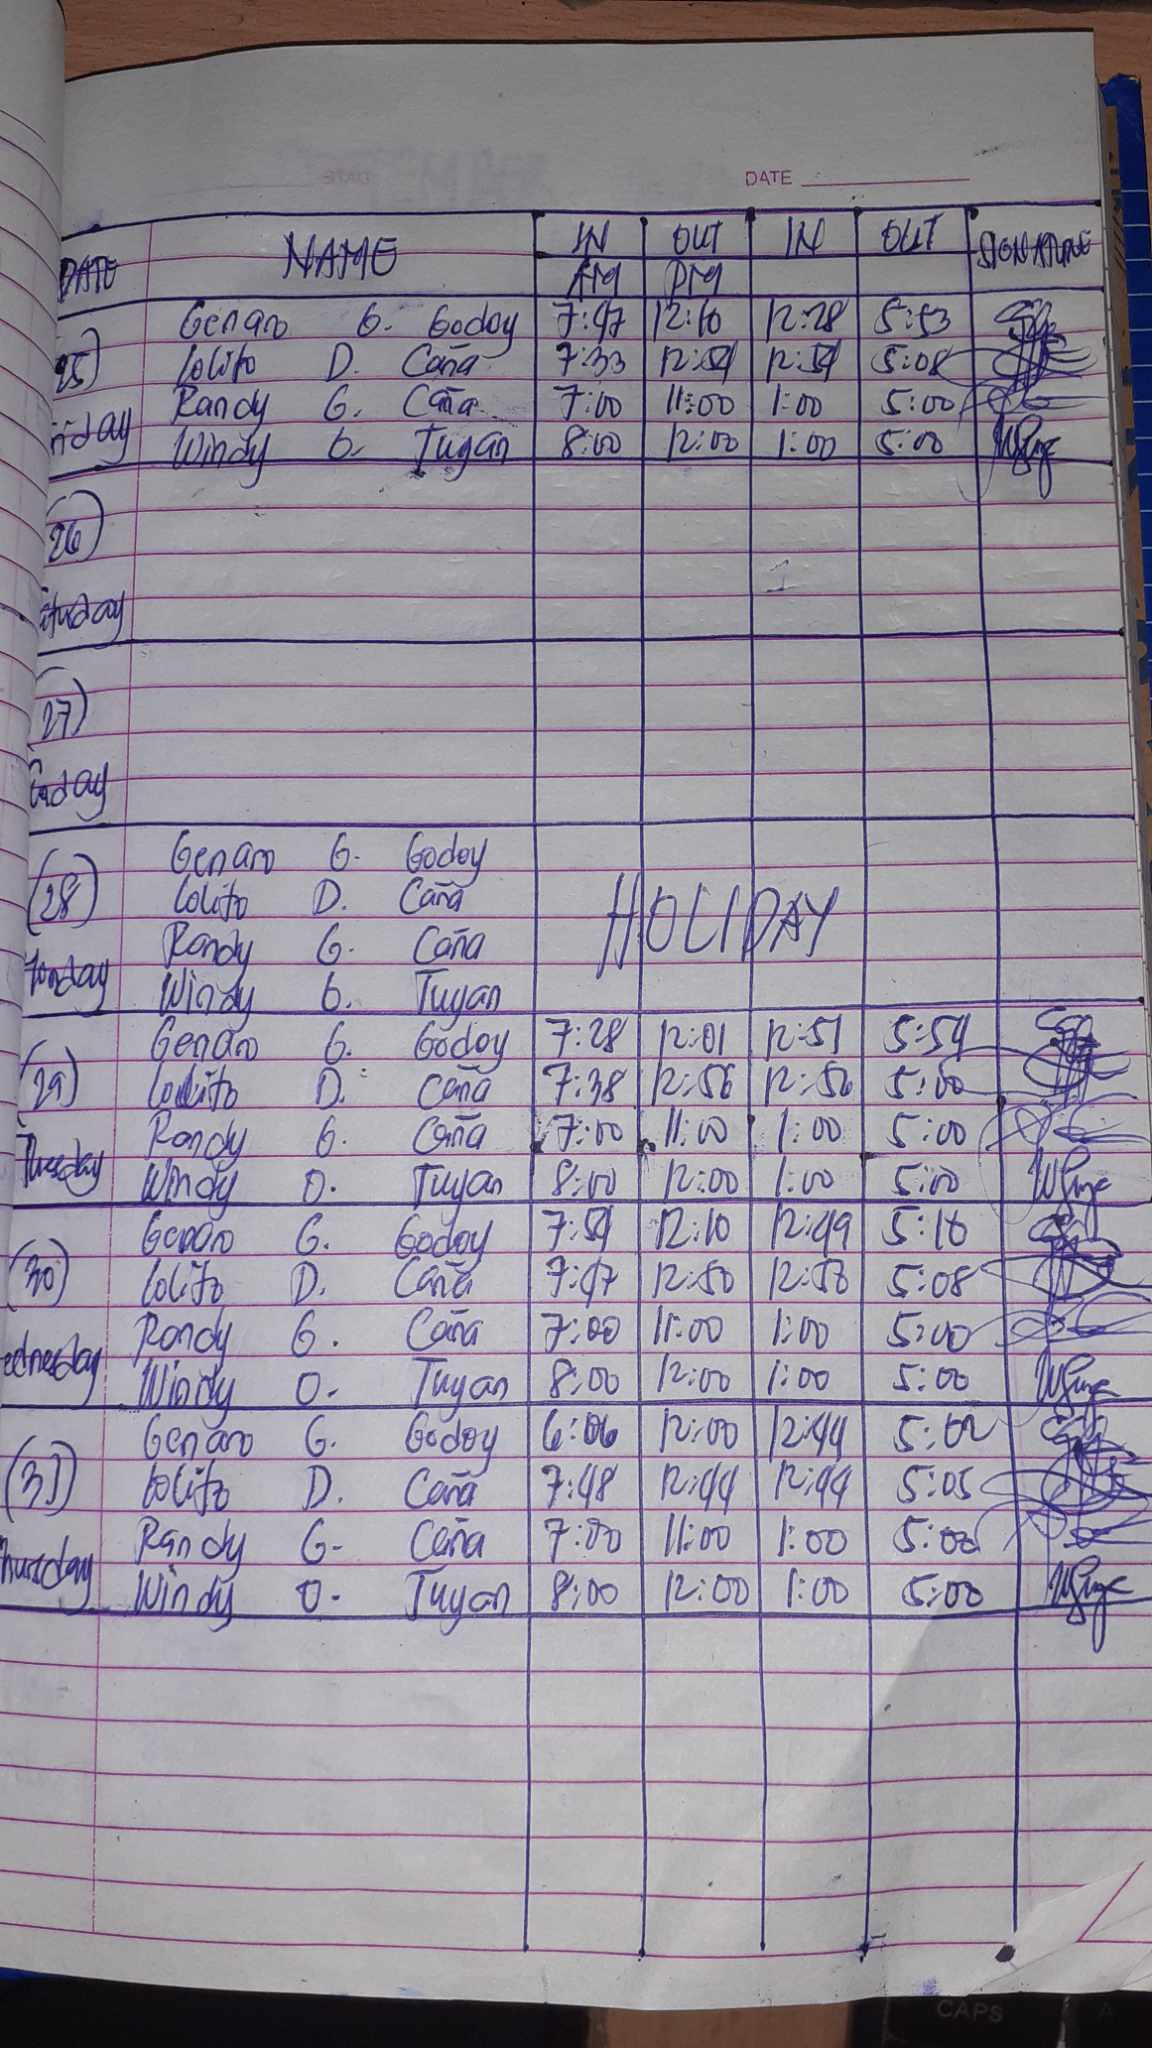 DATE
DATE NAME IN OUT IN OUT SIGNATURE
AM PM
Genaro G. Godoy 7:47 12:10 12:28 5:53
25) Lolito D. Caña 7:33 12:54 12:54 5:08
Randy G. Caña 7:00 11:00 1:00 5:00
riday Windy O. Tugan 8:00 12:00 1:00 5:00
(26)
aturday
(27)
unday
Genaro G. Godoy
(28) Lolito D. Caña HOLIDAY
Randy G. Caña
Monday Windy O. Tuyan
Genaro G. Godoy 7:28 12:01 12:51 5:54
(29) Lolito D. Caña 7:38 12:56 12:56 5:00
Randy G. Caña 7:00 11:00 1:00 5:00
Tuesday Windy O. Tuyan 8:00 12:00 1:00 5:00
Genaro G. Godoy 7:54 12:10 12:49 5:10
(30) Lolito D. Caña 7:47 12:50 12:50 5:08
Randy G. Caña 7:00 11:00 1:00 5:00
ednesday Windy O. Tuyan 8:00 12:00 1:00 5:00
Genaro G. Godoy 6:06 12:00 12:44 5:02
(31) Lolito D. Caña 7:48 12:44 12:44 5:05
Randy G. Caña 7:00 11:00 1:00 5:00
hursday Windy O. Tuyan 8:00 12:00 1:00 5:00
CAPS
A